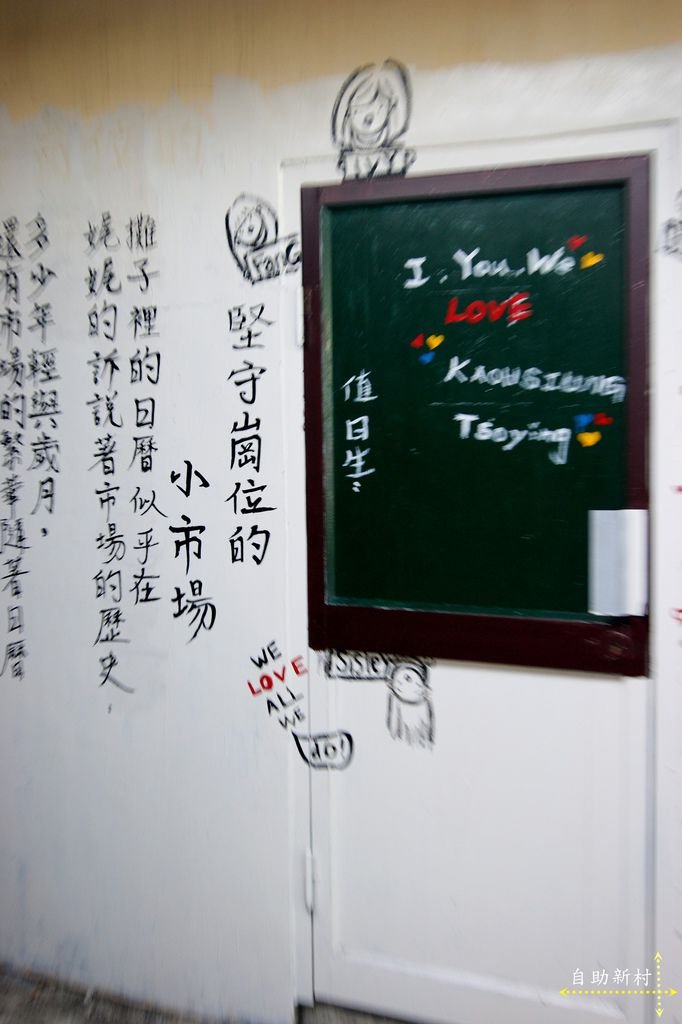 堅守崗位的
小市場
攤子裡的日曆似乎在
娓娓的訴說著市場的歷史,
多少年輕與歲月,
還有市場的繁華隨著日曆
I. You. We
LOVE
KAOHSIUNG
Tsoying
值日生:
WE
LOVE
ALL
WE
do!
自助新村